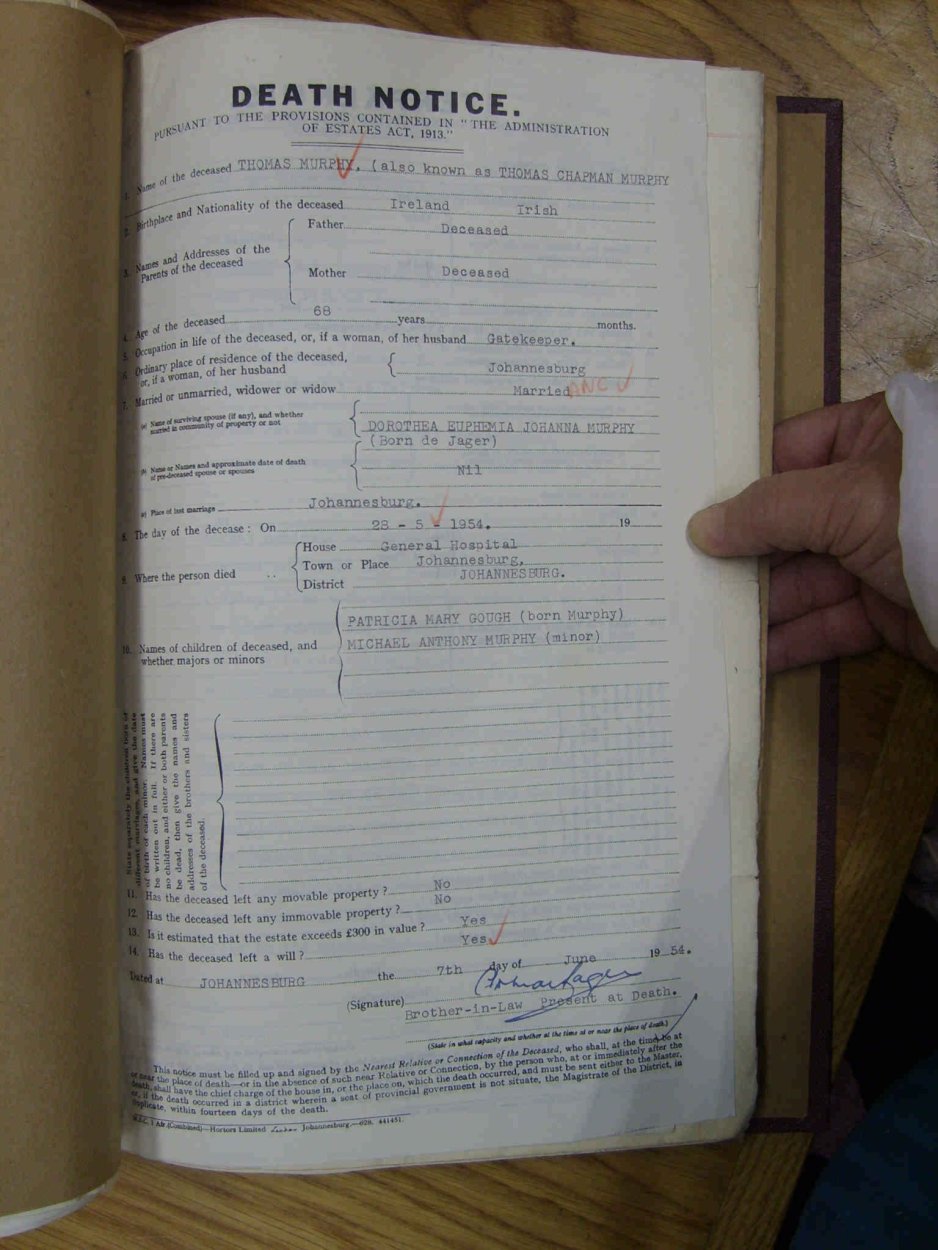 DEATH NOTICE.
PURSUANT TO THE PROVISIONS CONTAINED IN "THE ADMINISTRATION
OF ESTATES ACT, 1913."
1. Name of the deceased THOMAS MURPHY, (also known as THOMAS CHAPMAN MURPHY
2. Birthplace and Nationality of the deceased Ireland Irish
3. Names and Addresses of the Parents of the deceased
Father Deceased
Mother Deceased
4. Age of the deceased 68 years months.
5. Occupation in life of the deceased, or, if a woman, of her husband Gatekeeper.
6. Ordinary place of residence of the deceased,
or, if a woman, of her husband Johannesburg
7. Married or unmarried, widower or widow Married ANC
(a) Name of surviving spouse (if any), and whether
married in community of property or not
DOROTHEA EUPHEMIA JOHANNA MURPHY
(Born de Jager)
(b) Name or Names and approximate date of death
of pre-deceased spouse or spouses Nil
(c) Place of last marriage Johannesburg.
8. The day of the decease: On 28 - 5 - 1954. 19
9. Where the person died ..
House General Hospital
Town or Place Johannesburg,
District JOHANNESBURG.
10. Names of children of deceased, and
whether majors or minors
PATRICIA MARY GOUGH (born Murphy)
MICHAEL ANTHONY MURPHY (minor)
State separately the children born of
different marriages, and give the date
of birth of each minor. Names must
be written out in full. If there are
no children, and either or both parents
be dead, then give the names and
addresses of the brothers and sisters
of the deceased.
11. Has the deceased left any movable property? No
12. Has the deceased left any immovable property? No
13. Is it estimated that the estate exceeds £300 in value? Yes
14. Has the deceased left a will? Yes
Dated at JOHANNESBURG the 7th day of June 19 54.
(Signature)
Brother-in-Law Present at Death.
(State in what capacity and whether at the time at or near the place of death.)
This notice must be filled up and signed by the Nearest Relative or Connection of the Deceased, who shall, at the time, be at
or near the place of death—or in the absence of such near Relative or Connection, by the person who, at or immediately after the
death, shall have the chief charge of the house in, or the place on, which the death occurred, and must be sent either to the Master,
or, if the death occurred in a district wherein a seat of provincial government is not situate, the Magistrate of the District, in
duplicate, within fourteen days of the death.
1 Afr (Combined)—Hortors Limited Johannesburg.—628. 441451.